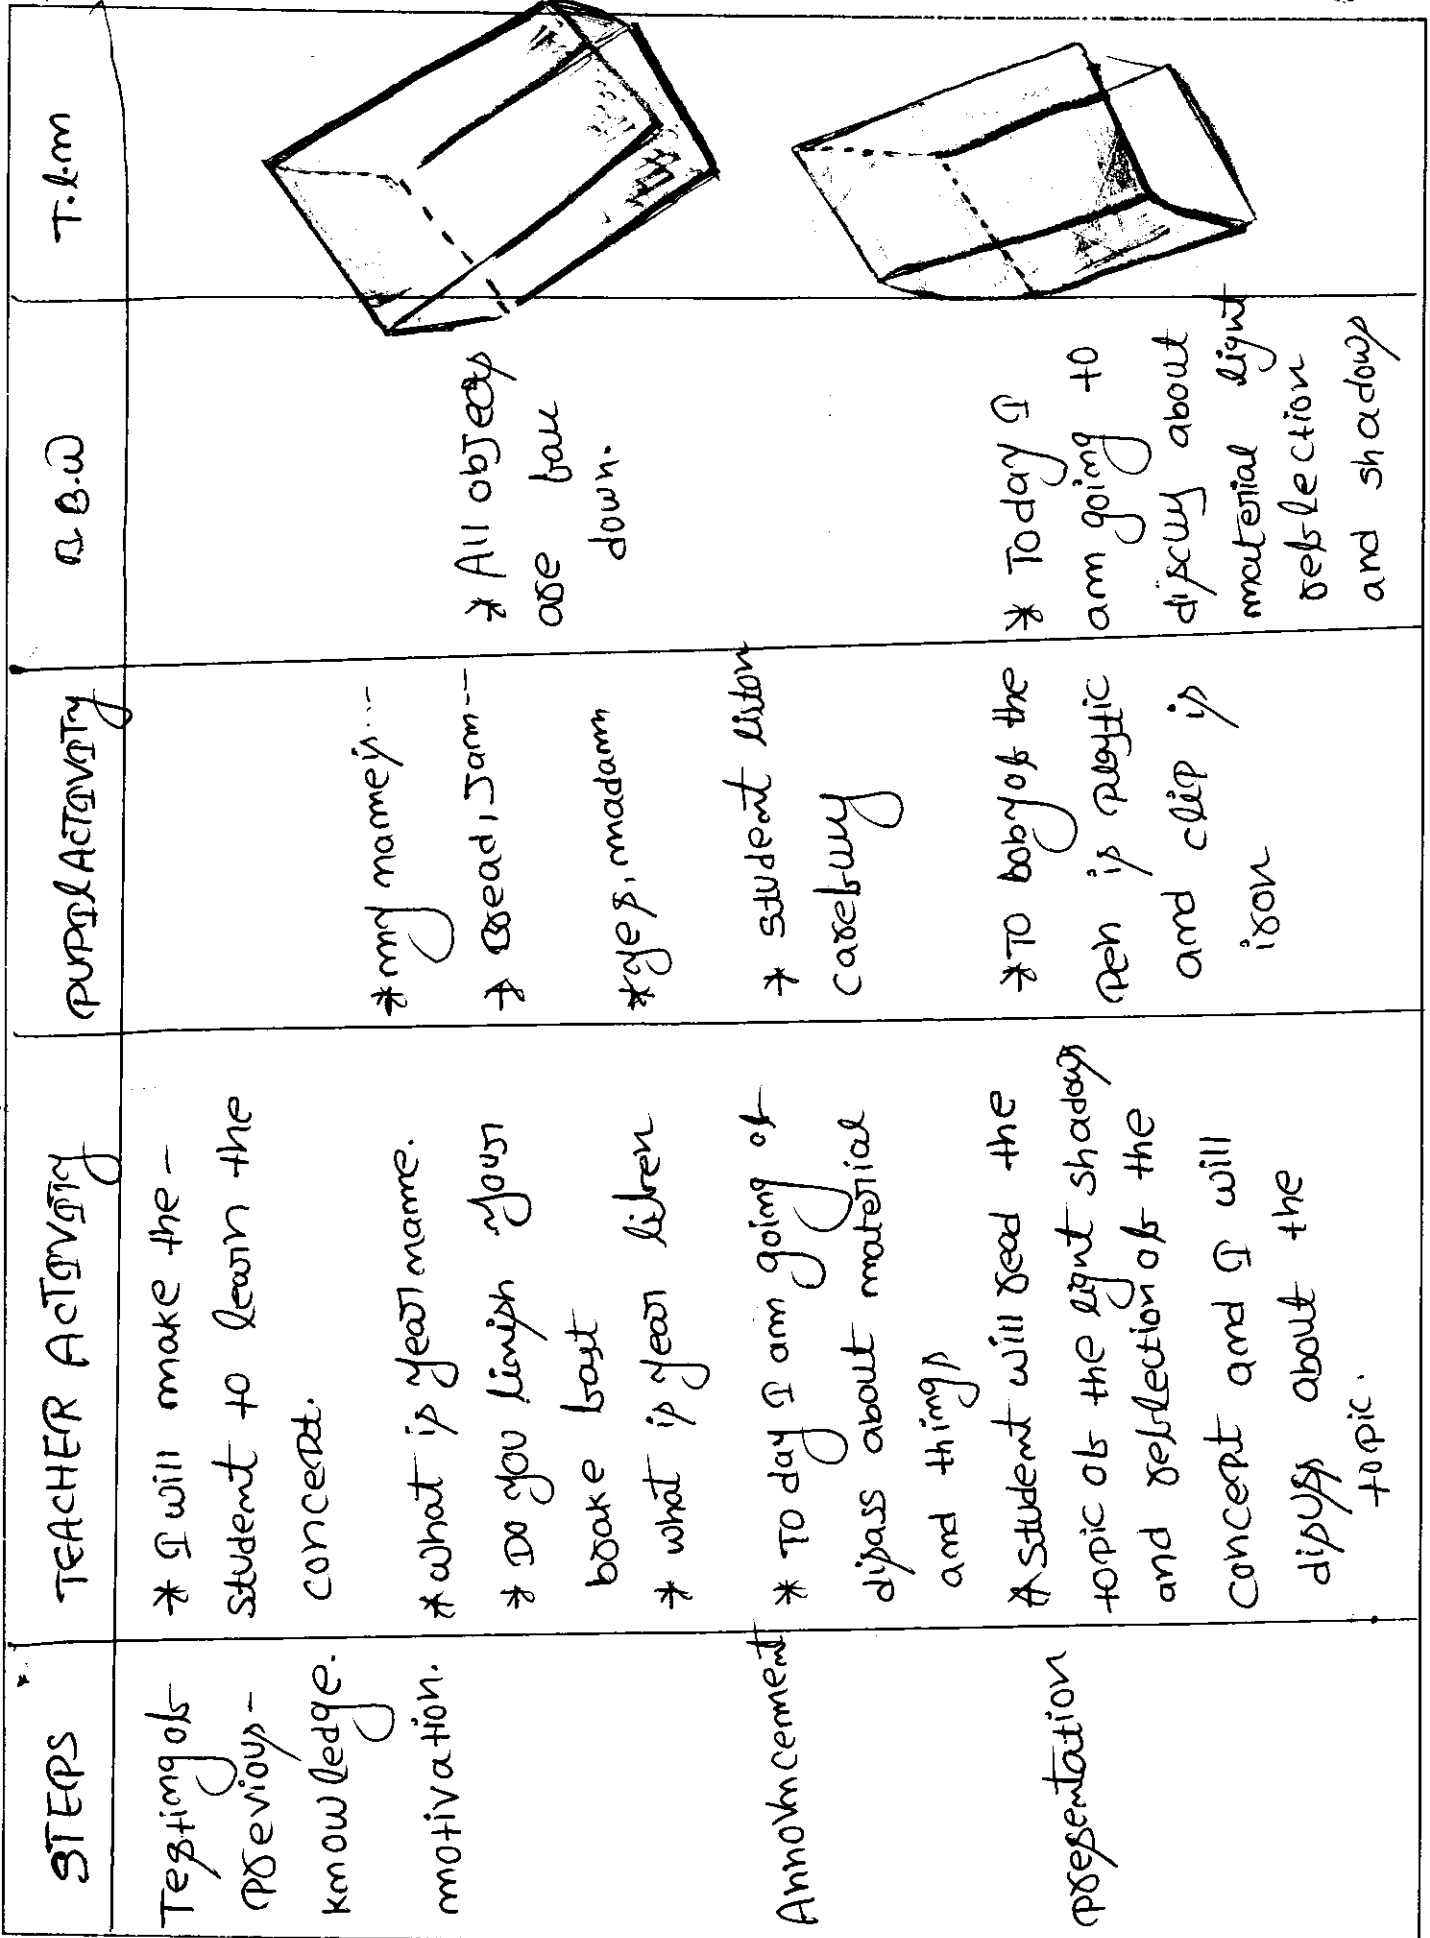 STEPS
TEACHER ACTIVITY
PUPIL ACTIVITY
B.B.W
T.L.M
Testing of
previous-
knowledge.
motivation.
* I will make the-
student to learn the
concept.
* what is year name.
* Do you finish your
brake fast
* what is year
* my name is...-
* Bread, Jam--
* yes, madam
* All objects
are fall
down.
Announcement
* To day I am going of
disass about material
and things
* student liston
carefully
presentation
* student will read the
topic of the light shadows
and reflection of the
concept and I will
disuss about the
topic.
* To boby of the
pen is plastic
and clip is
iron
* Today I
am going to
discuss about
material light
reflection
and shadows